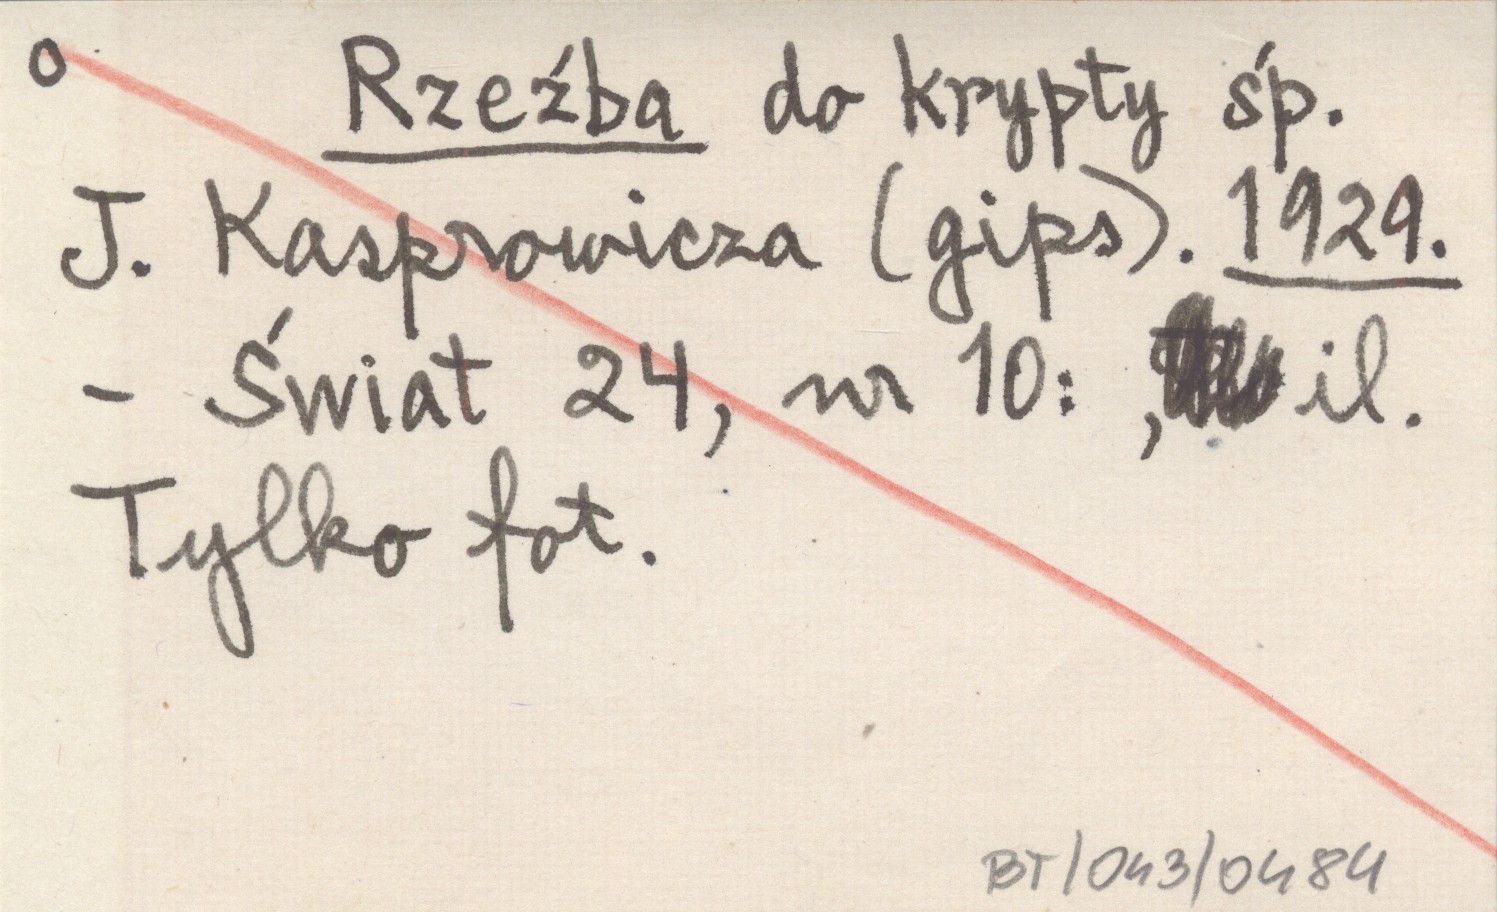 o Rzeźba do krypty śp.
J. Kasprowicza (gips). 1929.
- Świat 24, nr 10: , il.
Tylko fot.
BT/043/0484